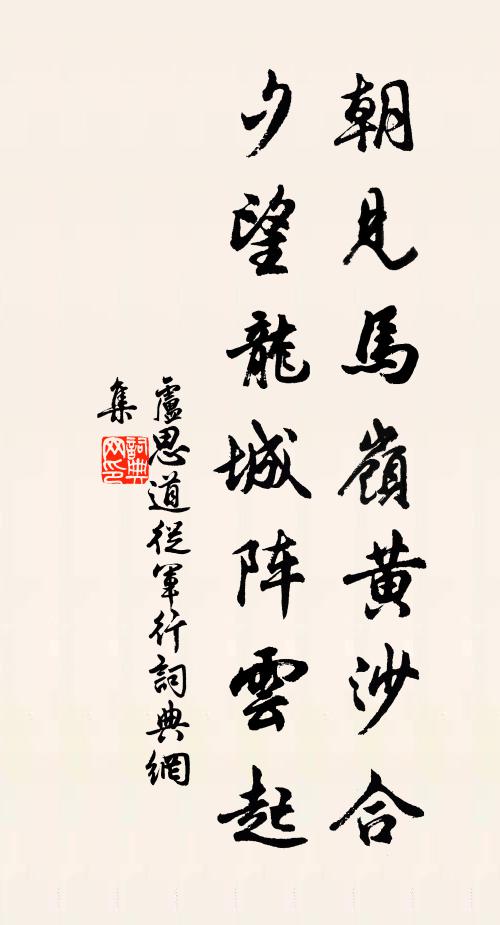 朝見馬嶺黄沙合
夕望龍城阵雲起
盧思道從軍行詞典網
集
詞典网印